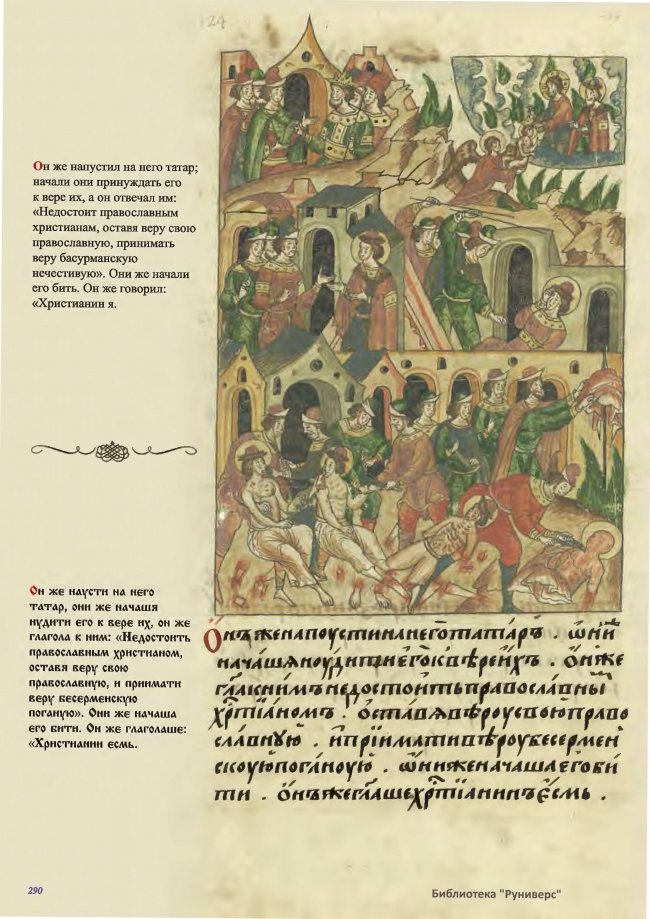 124
Он же напустил на него татар;
начали они принуждать его
к вере их, а он отвечал им:
«Недостоит православным
христианам, оставя веру свою
православную, принимать
веру басурманскую
нечестивую». Они же начали
его бить. Он же говорил:
«Христианин я.
Он же наусти на него
татар, они же начашя
нудити его к вере их, он же
глагола к ним: «Недостоить
православным христианом,
оставя веру свою
православную, и приимати
веру бесерменскую
поганую». Они же начаша
его бити. Он же глаголаше:
«Христианин есмь.
Ѻнъженапоустинанеготатаръ . ѡнїи
начашѧноудитиегоквѣреихъ . ѻнже
глакнимънедостоитьправославны
хрⷭ҇тїаномъ . ѻставѧвѣроусвоюправо
славную . ипрїимативѣроубесермен
скоуюпоганоую . ѡниженачашаегоби
ти . ѻнъжеглашехрⷭ҇тїанинъесмь .
290
Библиотека "Руниверс"